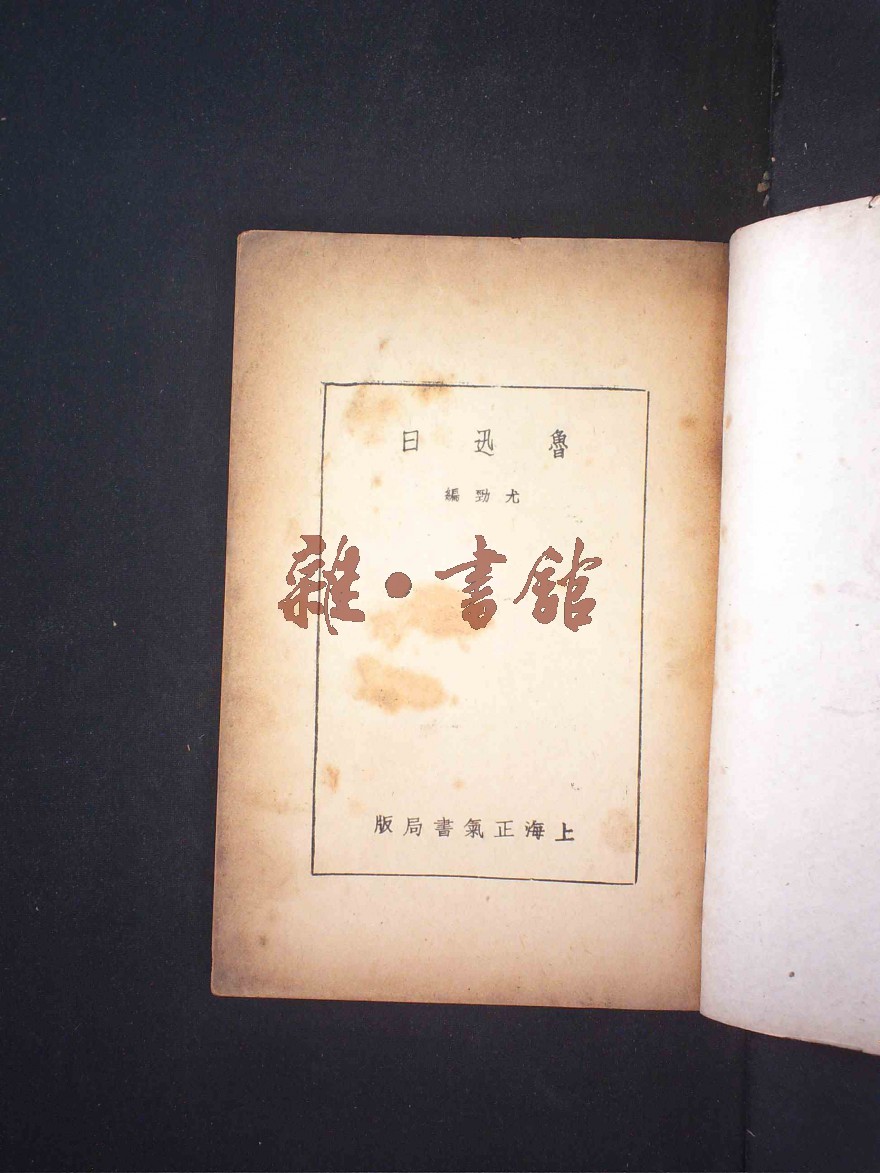 魯迅曰
尤勁編
雜·書館
上海正氣書局版